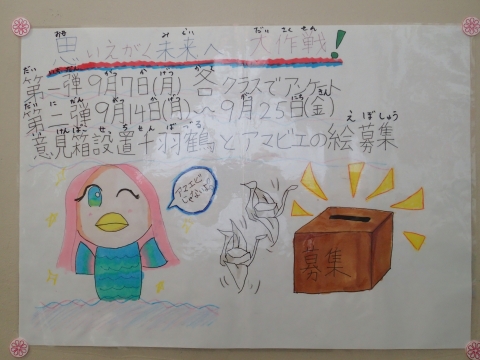 思いえがく未来へ 大作戦!
第一弾 9月7日(月) 各クラスでアンケート
第二弾 9月14日(月)〜9月25日(金)
意見箱設置 千羽鶴とアマビエの絵募集
アマエビじゃないよ!
募集